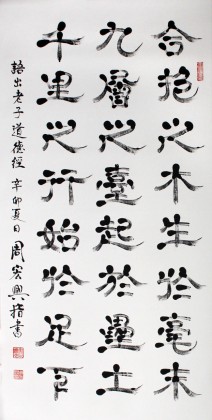 合抱之木生於毫末
九層之臺起於壘土
千里之行始於足下
語出老子道德經 辛卯夏日 周宏興指書